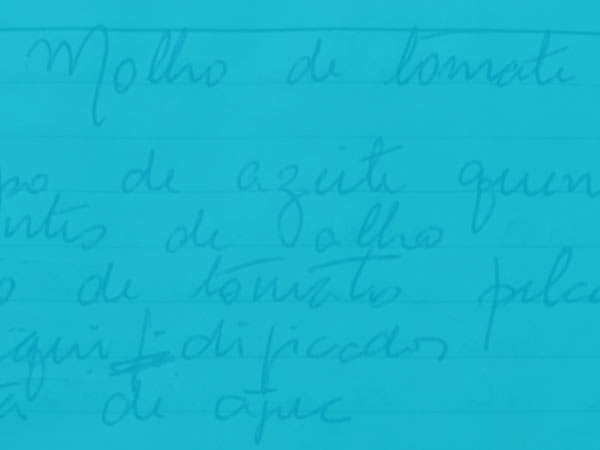 Molho de tomate
po de azeite quen
ntes de alho
o de tomates pela
iqui dificados
a de açuc